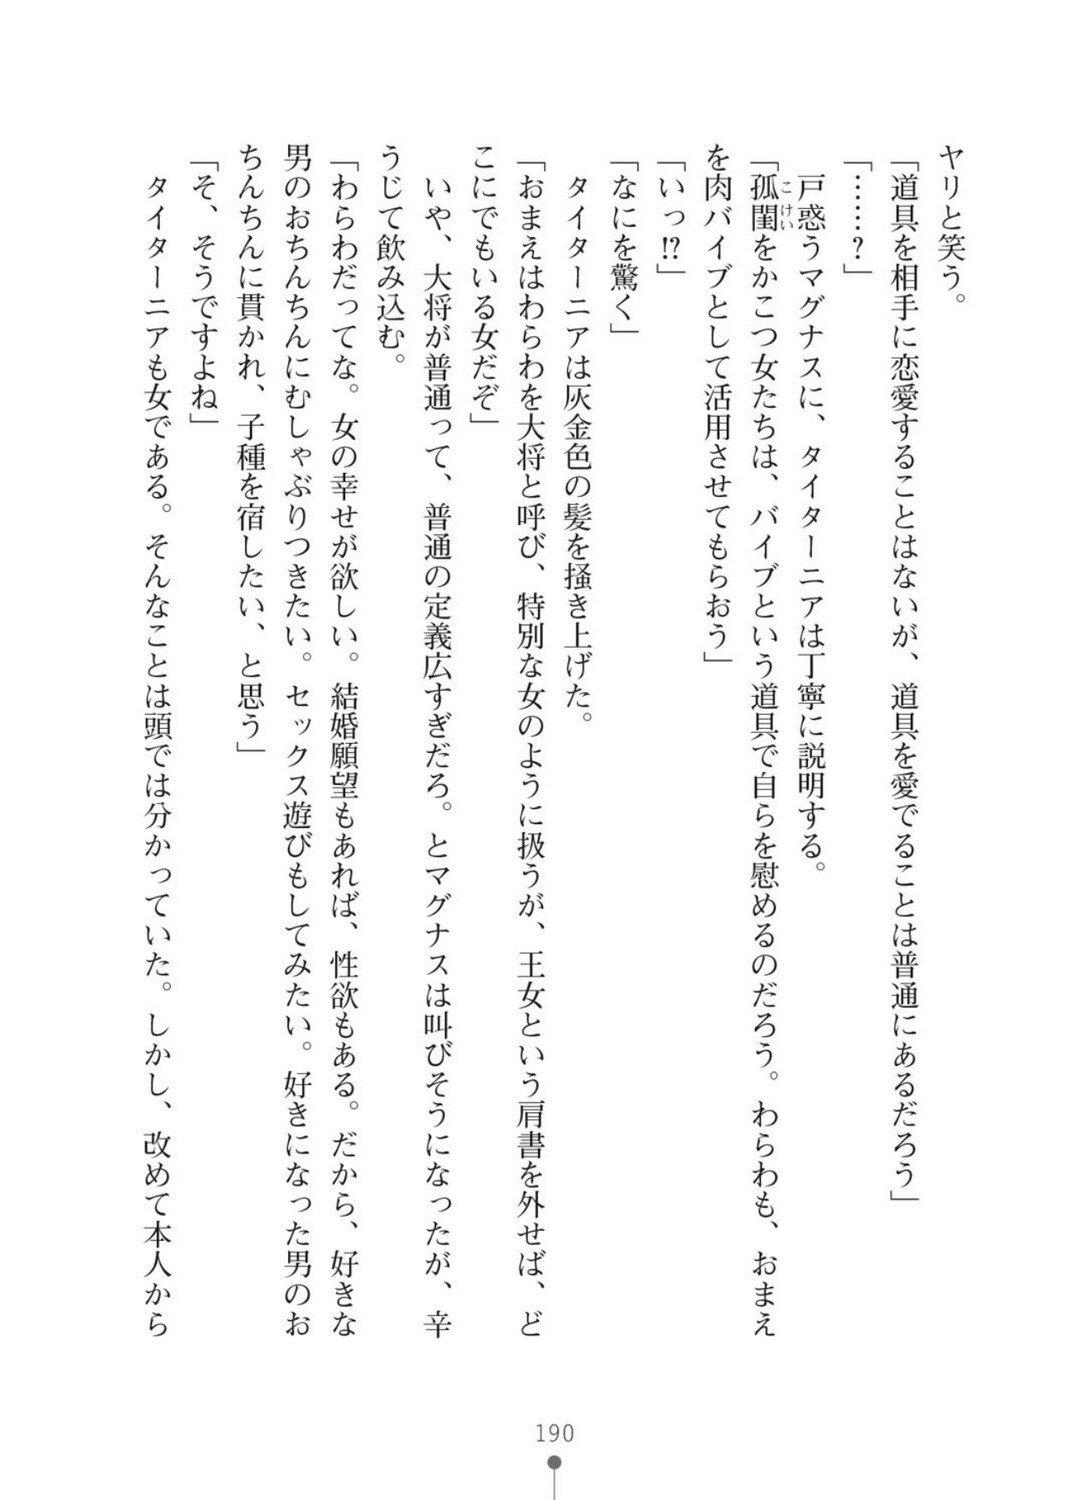 ヤリと笑う。
「道具を相手に恋愛することはないが、道具を愛でることは普通にあるだろう」
「……？」
戸惑うマグナスに、タイターニアは丁寧に説明する。
「孤閨をかこつ女たちは、バイブという道具で自らを慰めるのだろう。わらわも、おまえ
こけい
を肉バイブとして活用させてもらおう」
「いっ!?」
「なにを驚く」
タイターニアは灰金色の髪を掻き上げた。
「おまえはわらわを大将と呼び、特別な女のように扱うが、王女という肩書を外せば、ど
こにでもいる女だぞ」
いや、大将が普通って、普通の定義広すぎだろ。とマグナスは叫びそうになったが、辛
うじて飲み込む。
「わらわだってな。女の幸せが欲しい。結婚願望もあれば、性欲もある。だから、好きな
男のおちんちんにむしゃぶりつきたい。セックス遊びもしてみたい。好きになった男のお
ちんちんに貫かれ、子種を宿したい、と思う」
「そ、そうですよね」
タイターニアも女である。そんなことは頭では分かっていた。しかし、改めて本人から
190